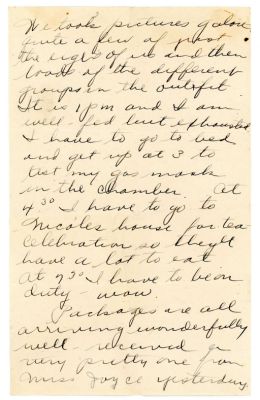 We took pictures galore
quite a few of just
the eight of us and then
loads of the different
groups in the outfit.
It is 1 pm and I am
well-fed but exhausted
I have to go to bed
and get up at 3 to
test my gas mask
in the chamber. At
4³⁰ I have to go to
Nicoles house for tea
Celebration so they'll
have a lot to eat
At 7³⁰ I have to be on
duty - wow.
Packages are all
arriving wonderfully
well - received a
very pretty one from
Miss Joyce yesterday.